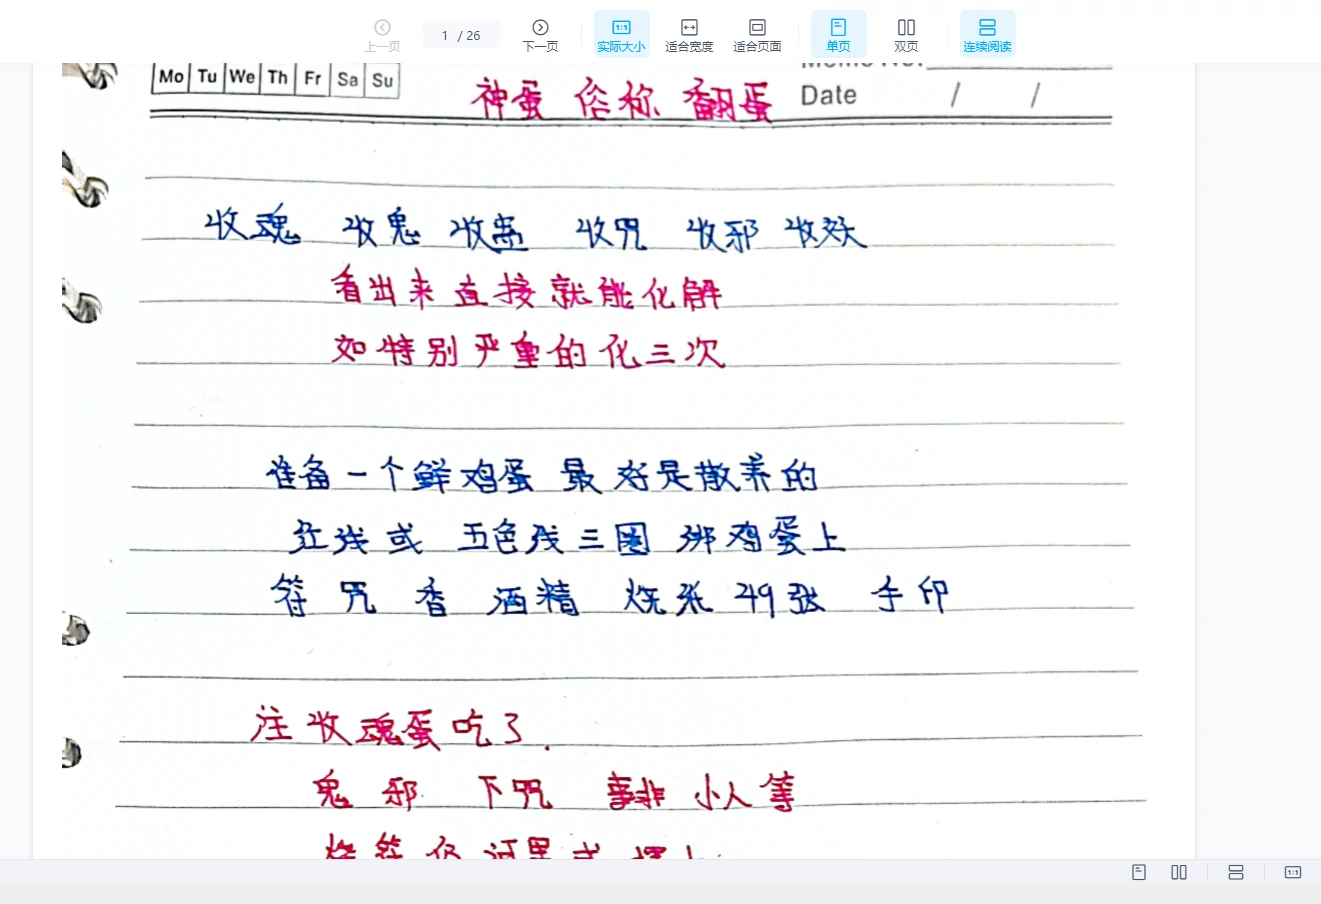 上一页 1 / 26 下一页 实际大小 适合宽度 适合页面 单页 双页 连续阅读
Mo Tu We Th Fr Sa Su
Memo No.
神蛋 俗称 翻蛋 Date / /
收魂 收鬼 收蛊 收咒 收邪 收妖
看出来直接就能化解
如特别严重的化三次
准备一个鲜鸡蛋 最好是散养的
红线或 五色线三圈 绑鸡蛋上
符 咒 香 酒精 烧纸 49张 手印
注 收魂蛋吃了.
鬼 邪 下咒 事非 小人等
1:1